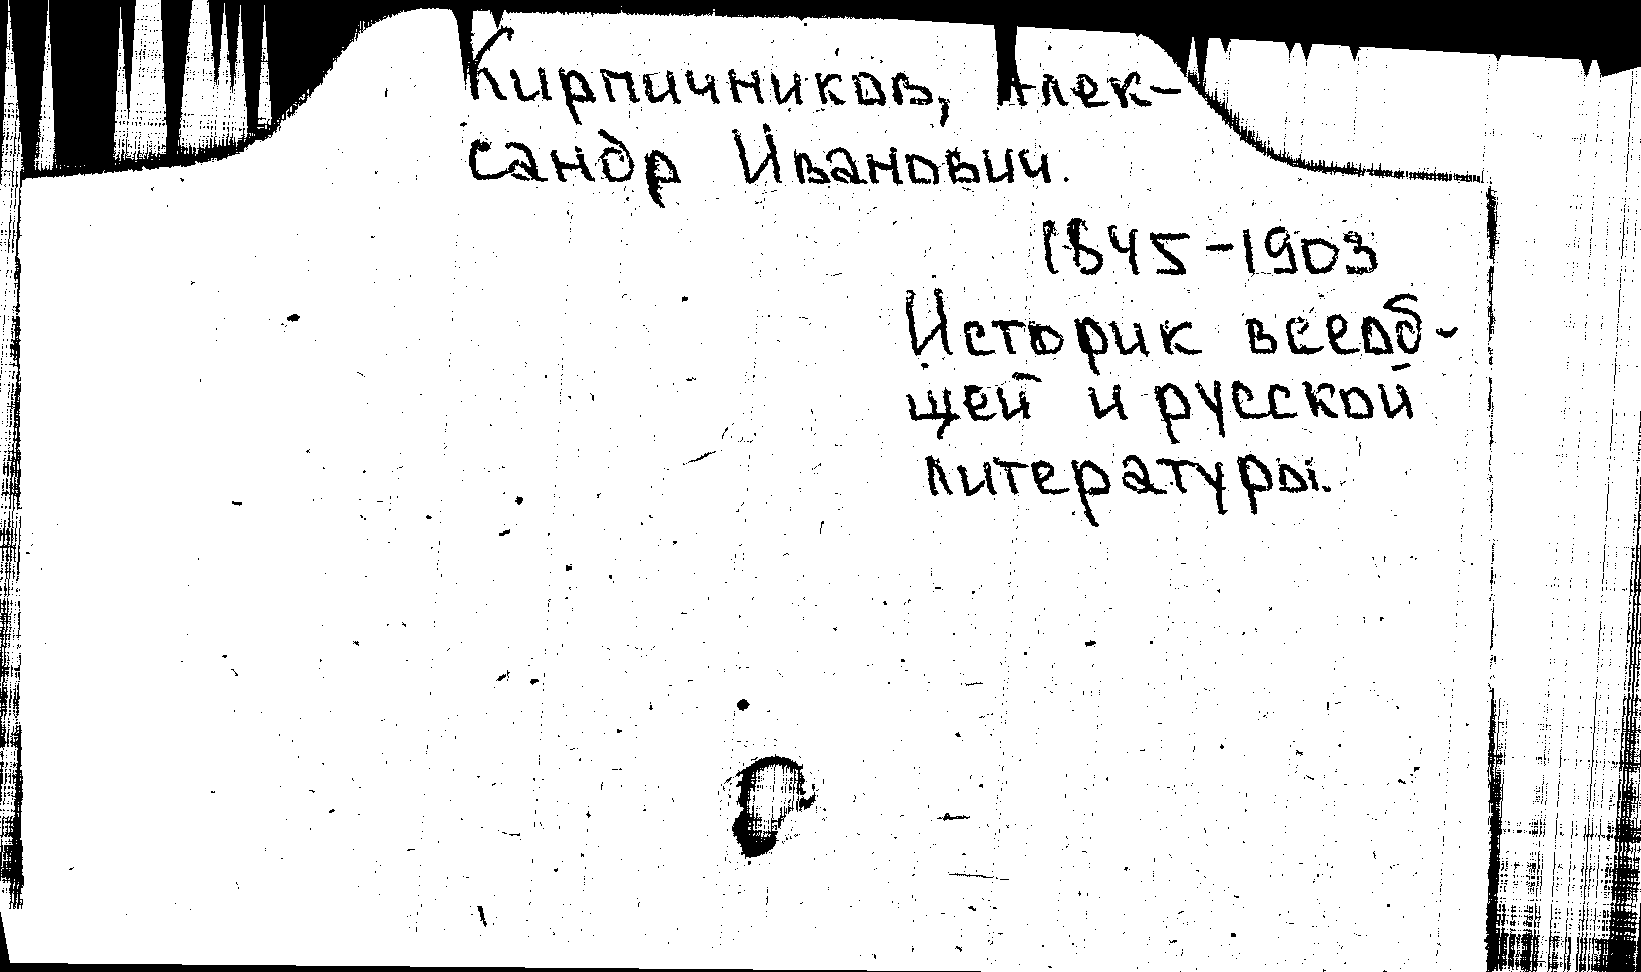 Кирпичников, Алек-
сандр Иванович.
1845-1903
Историк всеоб-
щей и русской
литературы.